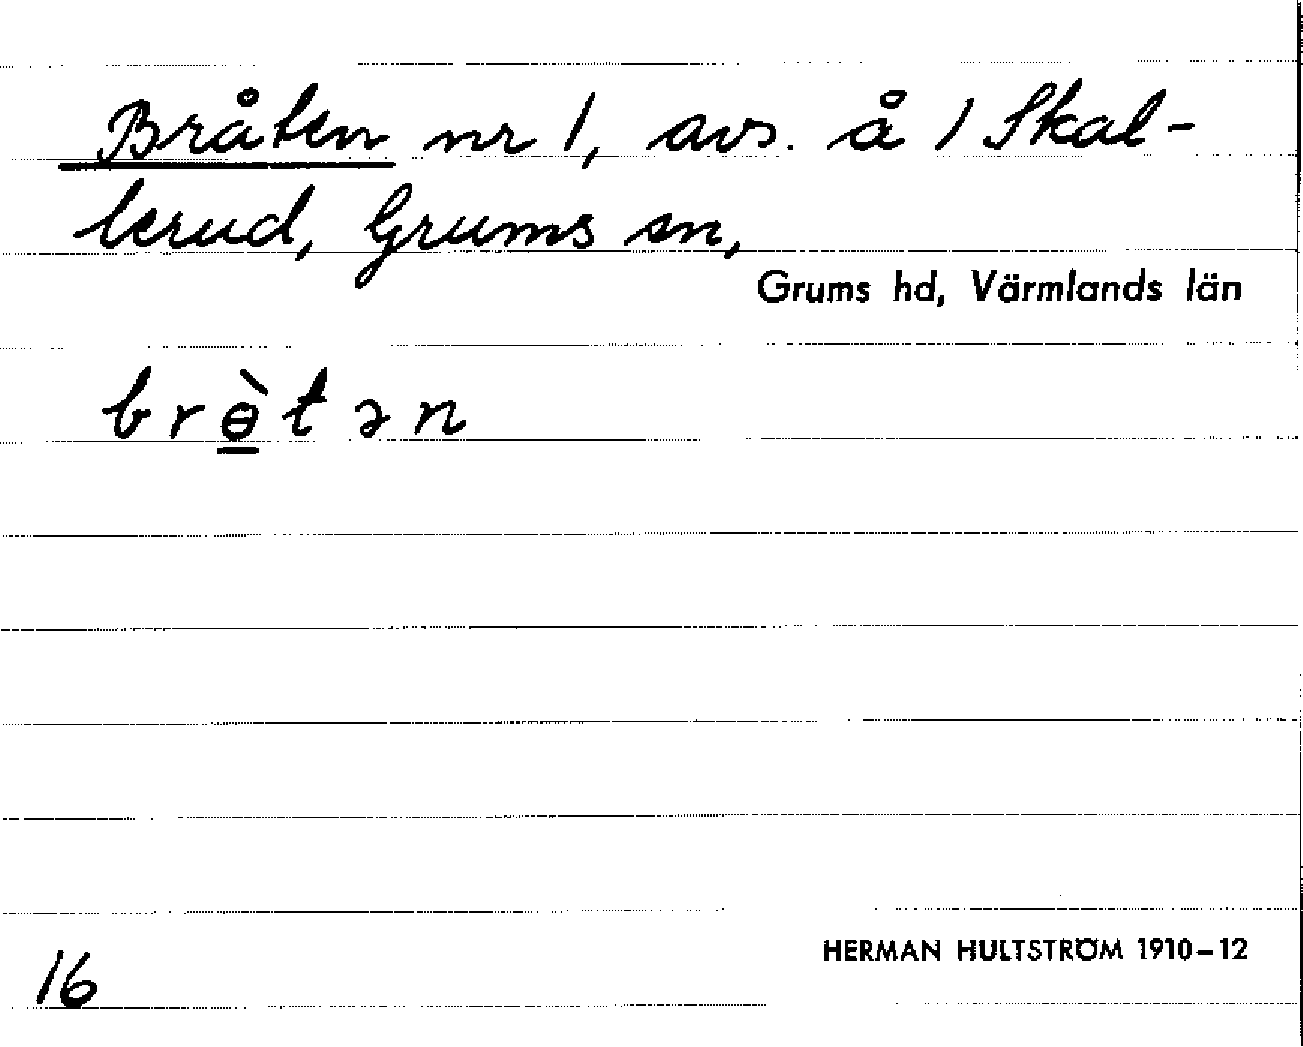 Bråten nr 1, avs. å 1 Skal-
lerud, Grums sn,
Grums hd, Värmlands län
brɵ̲̀tən
16
HERMAN HULTSTRÖM 1910–12